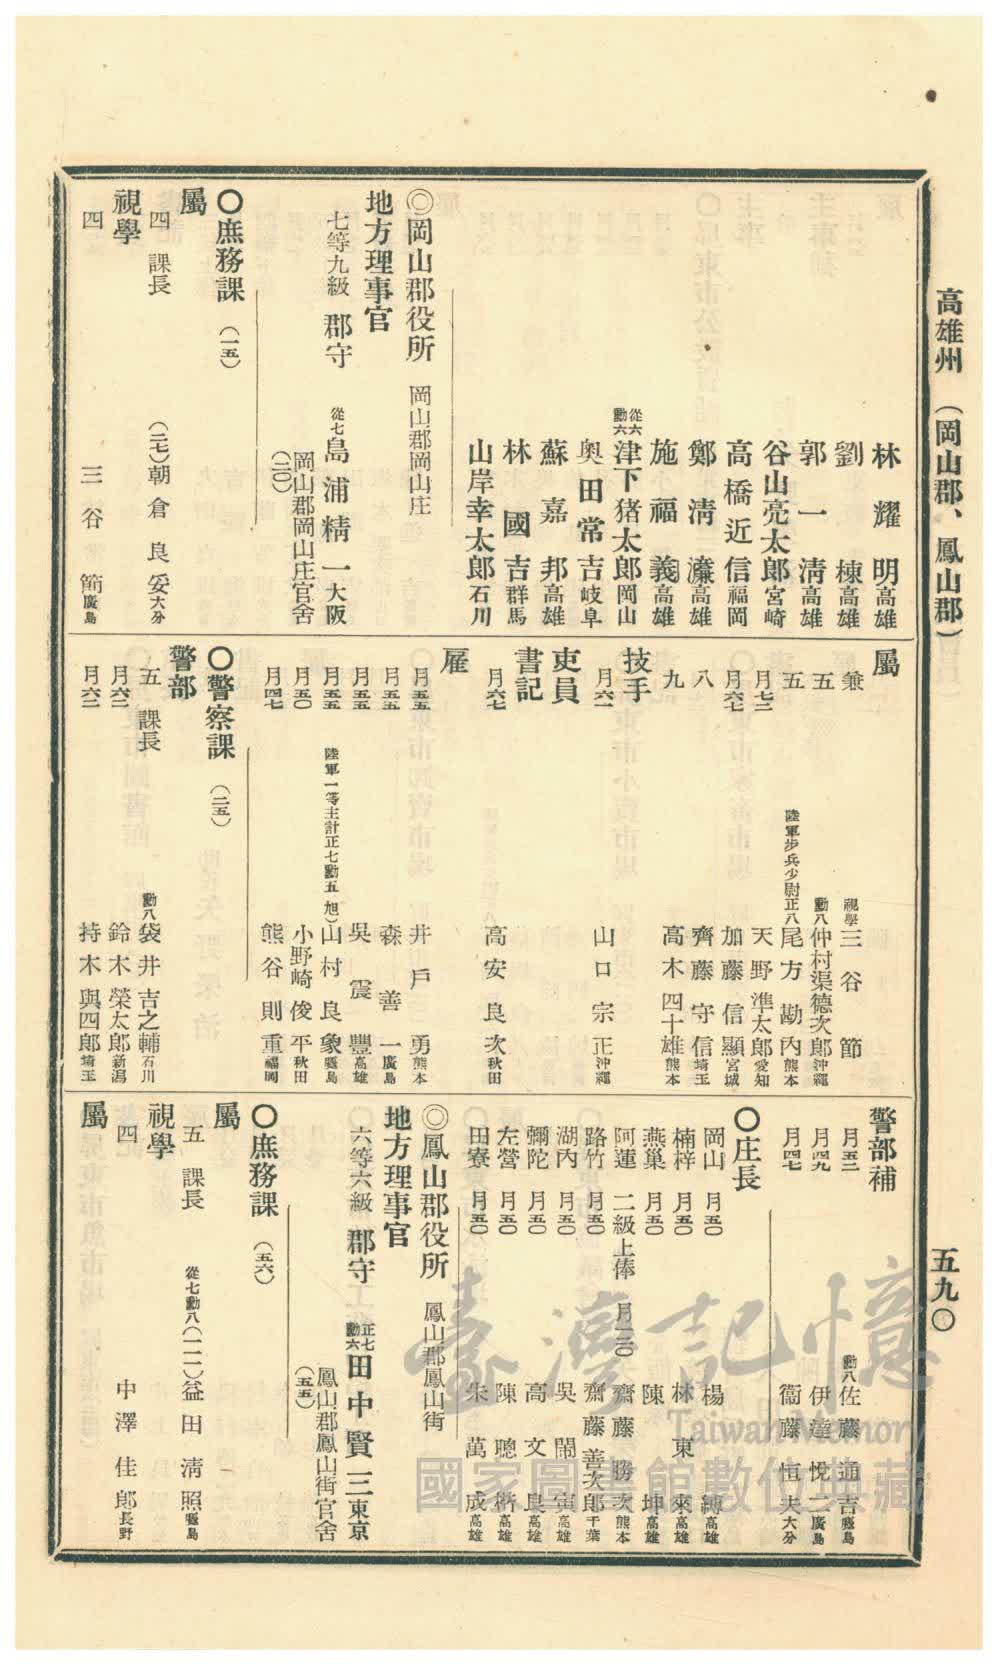 高雄州 (岡山郡、鳳山郡)
五九〇
林耀明 高雄
劉棟 高雄
郭一清 高雄
谷山亮太郎 宮崎
高橋近信 福岡
鄭清濂 高雄
施福義 高雄
從六勳六 津下猪太郎 岡山
奥田常吉 岐阜
蘇嘉邦 高雄
林國吉 群馬
山岸幸太郎 石川
◎岡山郡役所 岡山郡岡山庄
地方理事官
七等九級 郡守 從七 島浦精一 大阪
岡山郡岡山庄官舍
(二〇)
〇庶務課 (一五)
屬
四 課長 (二七)朝倉良安 大分
視學
四 三谷節 廣島
屬
兼 視學 三谷節
五 勳八 仲村渠德次郎 沖繩
五 陸軍步兵少尉正八 尾方勘内 熊本
月七二 天野準太郎 愛知
月六七 加藤信顯 宮城
八 齊藤守信 埼玉
九 高木四十雄 熊本
技手
月六二 山口宗正 沖繩
吏員
書記
月六七 高安良次 秋田
雇
月五五 井戶勇 熊本
月五五 森善一 廣島
月五五 吳震豐 高雄
月五五 陸軍一等主計正七勳五旭)山村良象
月五〇 小野崎俊平 秋田
月四七 熊谷則重 福岡
〇警察課 (二五)
警部
五 課長 勳八 袋井吉之輔 石川
月六二 鈴木榮太郎 新潟
月六二 持木與四郎 埼玉
警部補
月五二 勳八 佐藤通吉
月四九 伊達悅二 廣島
月四七 衞藤恒夫 大分
〇庄長
岡山 月五〇 楊 高雄
楠梓 月五〇 林東來 高雄
燕巢 月五〇 陳坤 高雄
阿蓮 二級上俸 月一二〇 齋藤勝次 熊本
路竹 月五〇 齋藤善次郎 千葉
湖內 月五〇 吳鬧寅 高雄
彌陀 月五〇 高文良 高雄
左營 月五〇 陳聰 高雄
田寮 月五〇 朱萬成 高雄
◎鳳山郡役所 鳳山郡鳳山街
地方理事官
六等六級 郡守 正七勳六 田中賢三 東京
鳳山郡鳳山街官舍
(五五)
〇庶務課 (五六)
屬
五 課長 從七勳八(一一二)益田清照
視學
四 中澤佳郎 長野
屬
臺灣記憶
Taiwan Memory
國家圖書館數位典藏